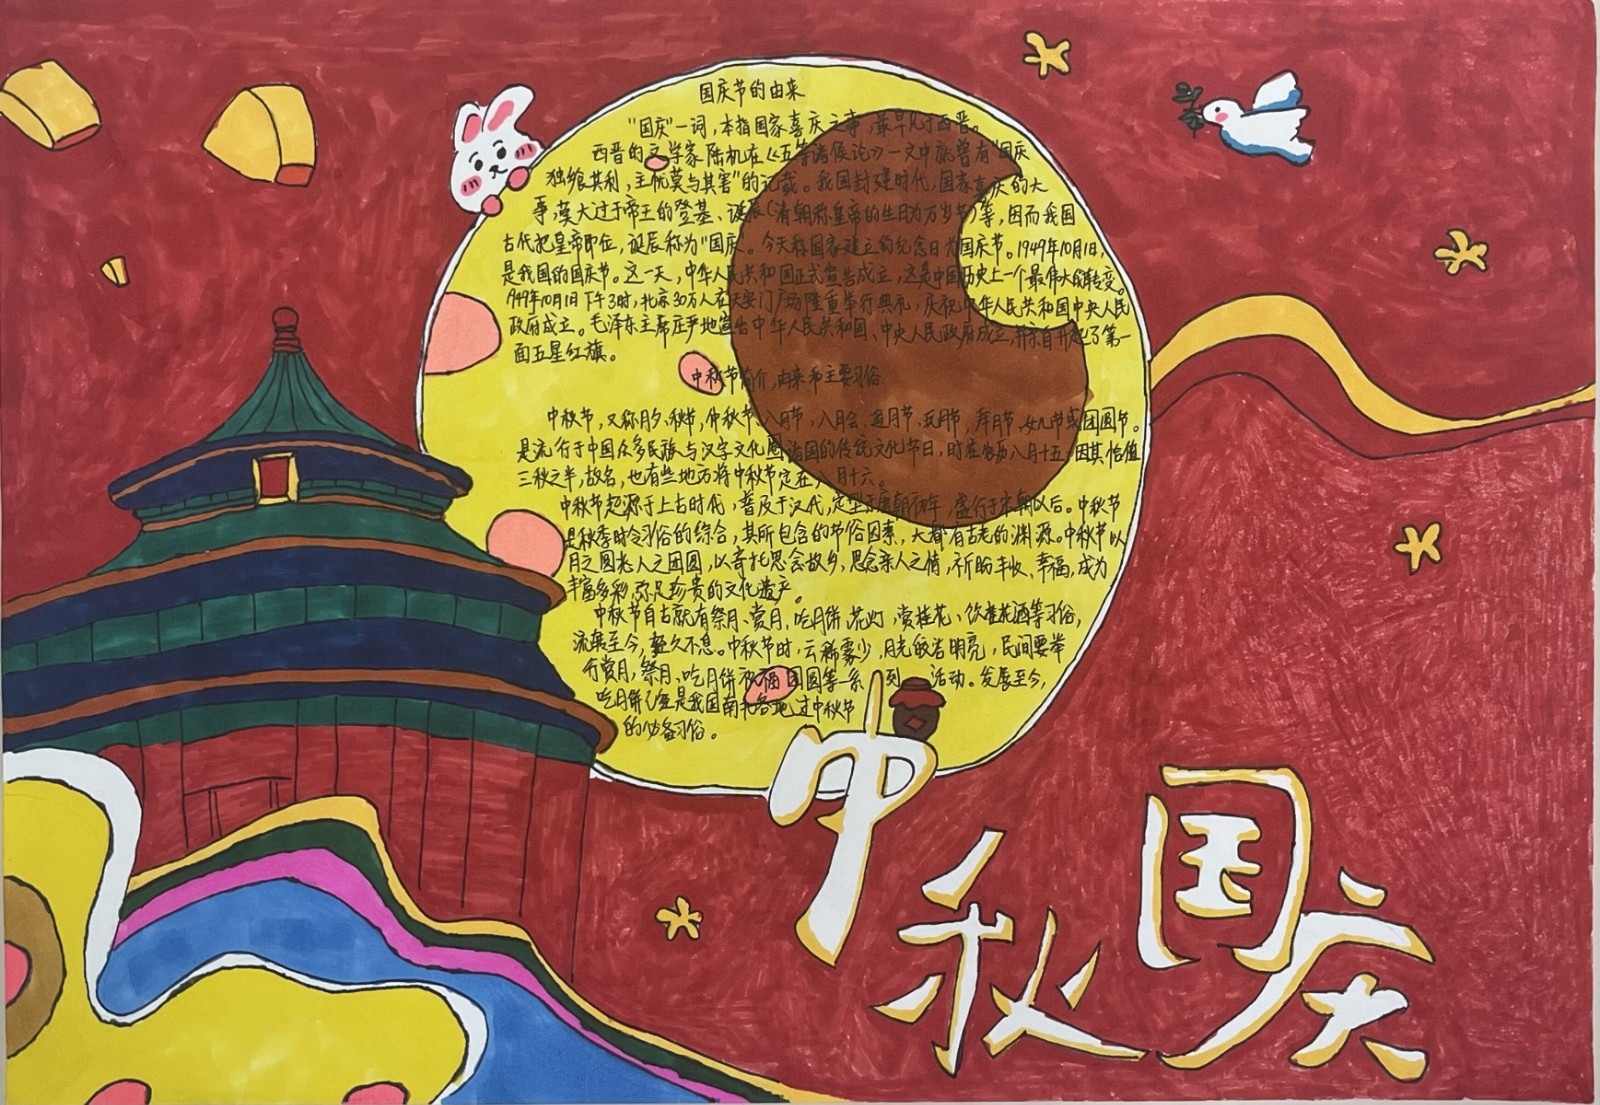 国庆节的由来
"国庆"一词，本指国家喜庆之事，最早见于西晋。
西晋的文学家陆机在《五等诸侯论》一文中就曾有"国庆
独飨其利，主忧莫与其害"的记载。我国封建时代，国家喜庆的大
事，莫大过于帝王的登基、诞辰（清朝称皇帝的生日为万岁节）等，因而我国
古代把皇帝即位，诞辰称为"国庆"。今天称国家建立的纪念日为国庆节。1949年10月1日，
是我国的国庆节。这一天，中华人民共和国正式宣告成立，这是中国历史上一个最伟大的转变。
1949年10月1日下午3时，北京30万人在天安门广场隆重举行典礼，庆祝中华人民共和国中央人民
政府成立。毛泽东主席庄严地宣告中华人民共和国、中央人民政府成立，并亲自升起了第一
面五星红旗。
中秋节简介，由来和主要习俗
中秋节，又称月夕、秋节，仲秋节、八月节，八月会，追月节、玩月节，拜月节、女儿节或团圆节。
是流行于中国众多民族与汉字文化圈诸国的传统文化节日，时在农历八月十五；因其恰值
三秋之半，故名，也有些地方将中秋节定在八月十六。
中秋节起源于上古时代，普及于汉代，定型于唐朝初年，盛行于宋朝以后。中秋节
是秋季时令习俗的综合，其所包含的节俗因素，大都有古老的渊源。中秋节以
月之圆老人之团圆，以寄托思念故乡，思念亲人之情，祈盼丰收、幸福，成为
丰富多彩，弥足珍贵的文化遗产。
中秋节自古就有祭月、赏月，吃月饼，花灯，赏桂花、饮桂花酒等习俗，
流传至今，经久不息。中秋节时，云稀雾少，月光皎洁明亮，民间要举
行赏月，祭月、吃月饼祝福团圆等一系列活动。发展至今，
吃月饼已经是我国南北各地过中秋节
的必备习俗。
中秋
国庆